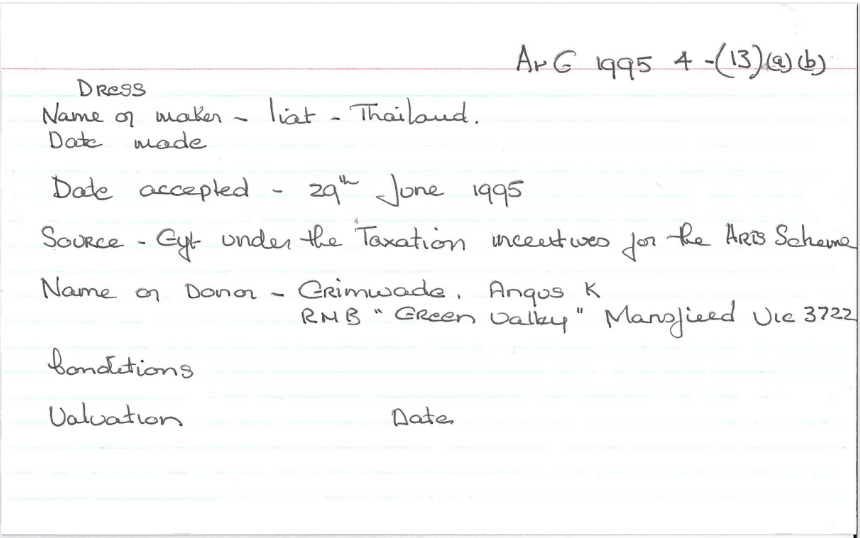 ArG 1995 4-(13)(a)(b)
Dress
Name of maker - liat - Thailand.
Date made
Date accepted - 29th June 1995
Source - Gift under the Taxation incentives for the Arts Scheme
Name of Donor - Grimwade, Angus K
RMB "Green Valley" Mansfield Vic 3722
Conditions
Valuation Date